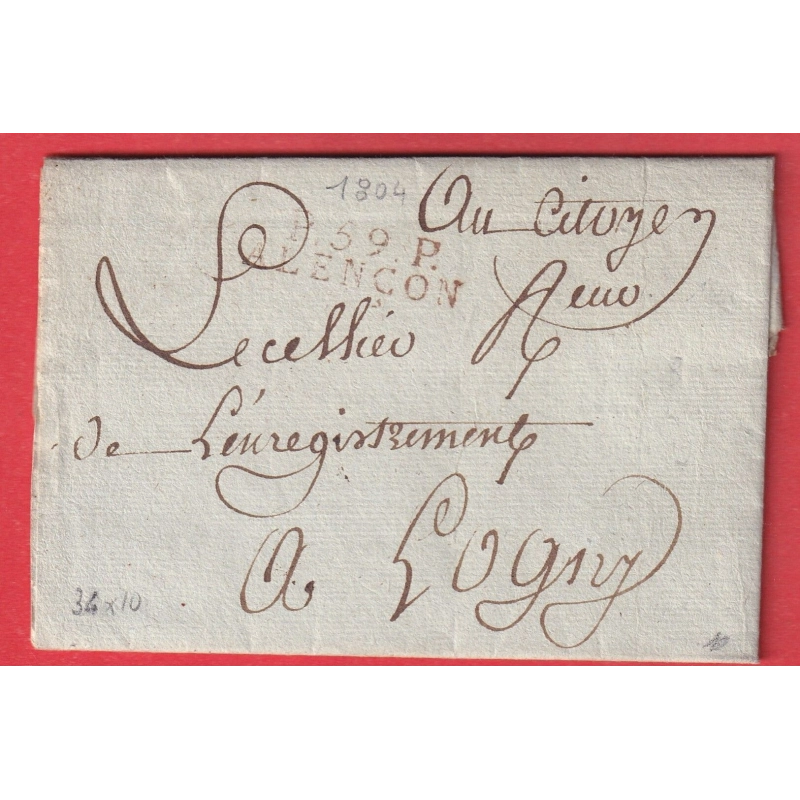 1804
Au Citoyen
P.59.P.
ALENCON
Aeno
Lecellier
de L'enregistrement
A Logny
34x10